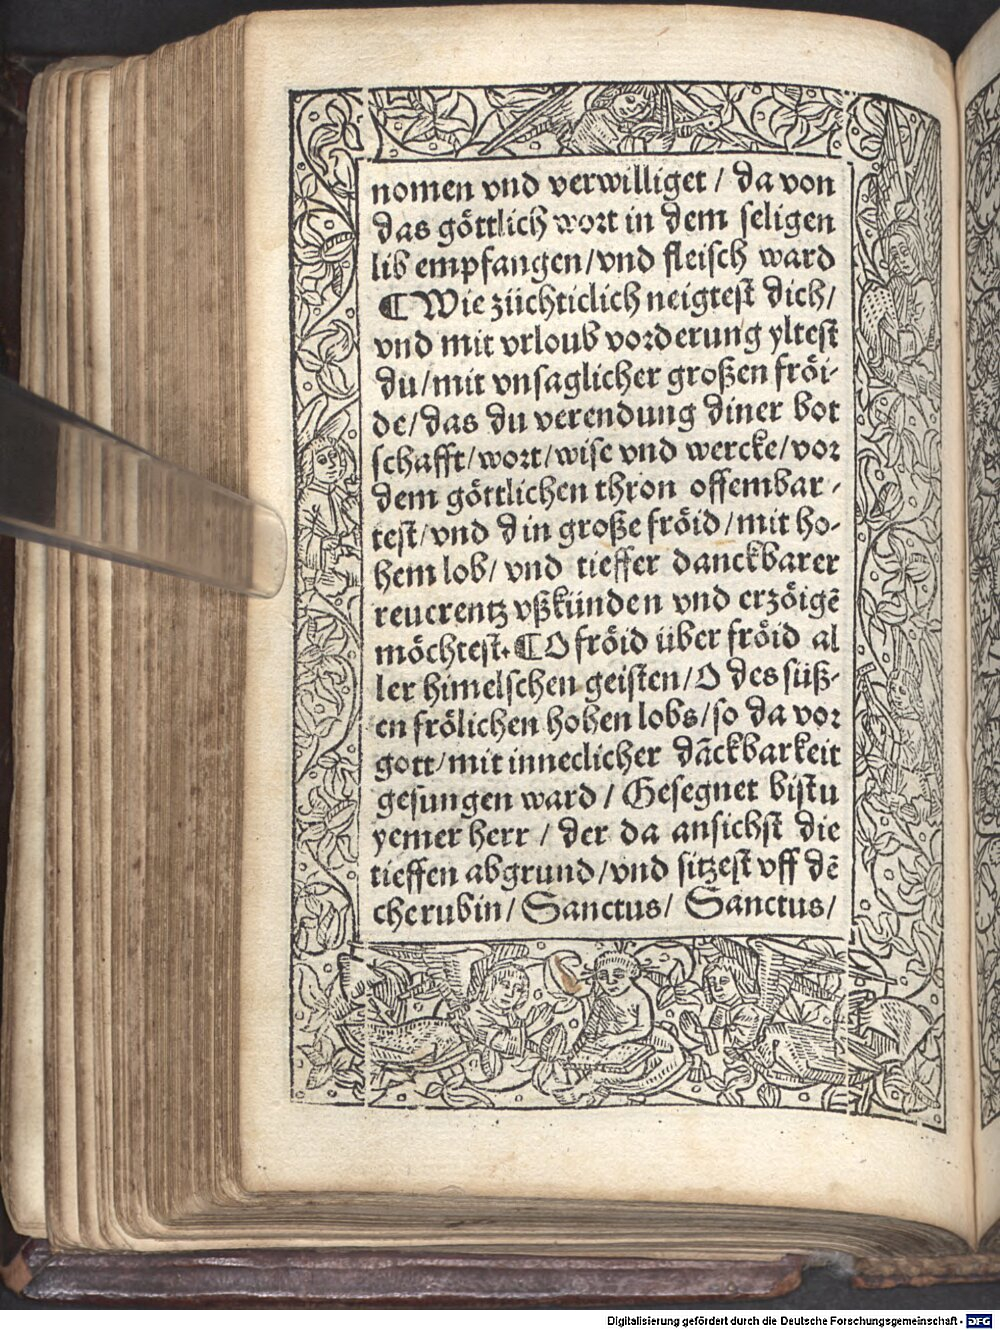 nomen vnd verwilliget / da von
das göttlich wort in dem seligen
lib empfangen/vnd fleisch ward
¶ Wie züchticlich neigtest dich/
vnd mit vrloub vorderung yltest
du/mit vnsaglicher großen fröi-
de/das du verendung diner bot
schafft/wort/wise vnd wercke/vor
dem göttlichen thron offembar-
test/vnd din große fröid/mit ho-
hem lob/ vnd tieffer danckbarer
reuerentz vßkünden vnd erzöigē
möchtest. ¶ O fröid über fröid al
ler himelschen geisten/O des süß-
en frölichen hohen lobs/so da vor
gott/mit inneclicher dāckbarkeit
gesungen ward / Gesegnet bistu
yemer herr / der da ansichst die
tieffen abgrund/vnd sitzest vff dē
cherubin/ Sanctus/ Sanctus/
Digitalisierung gefördert durch die Deutsche Forschungsgemeinschaft - DFG